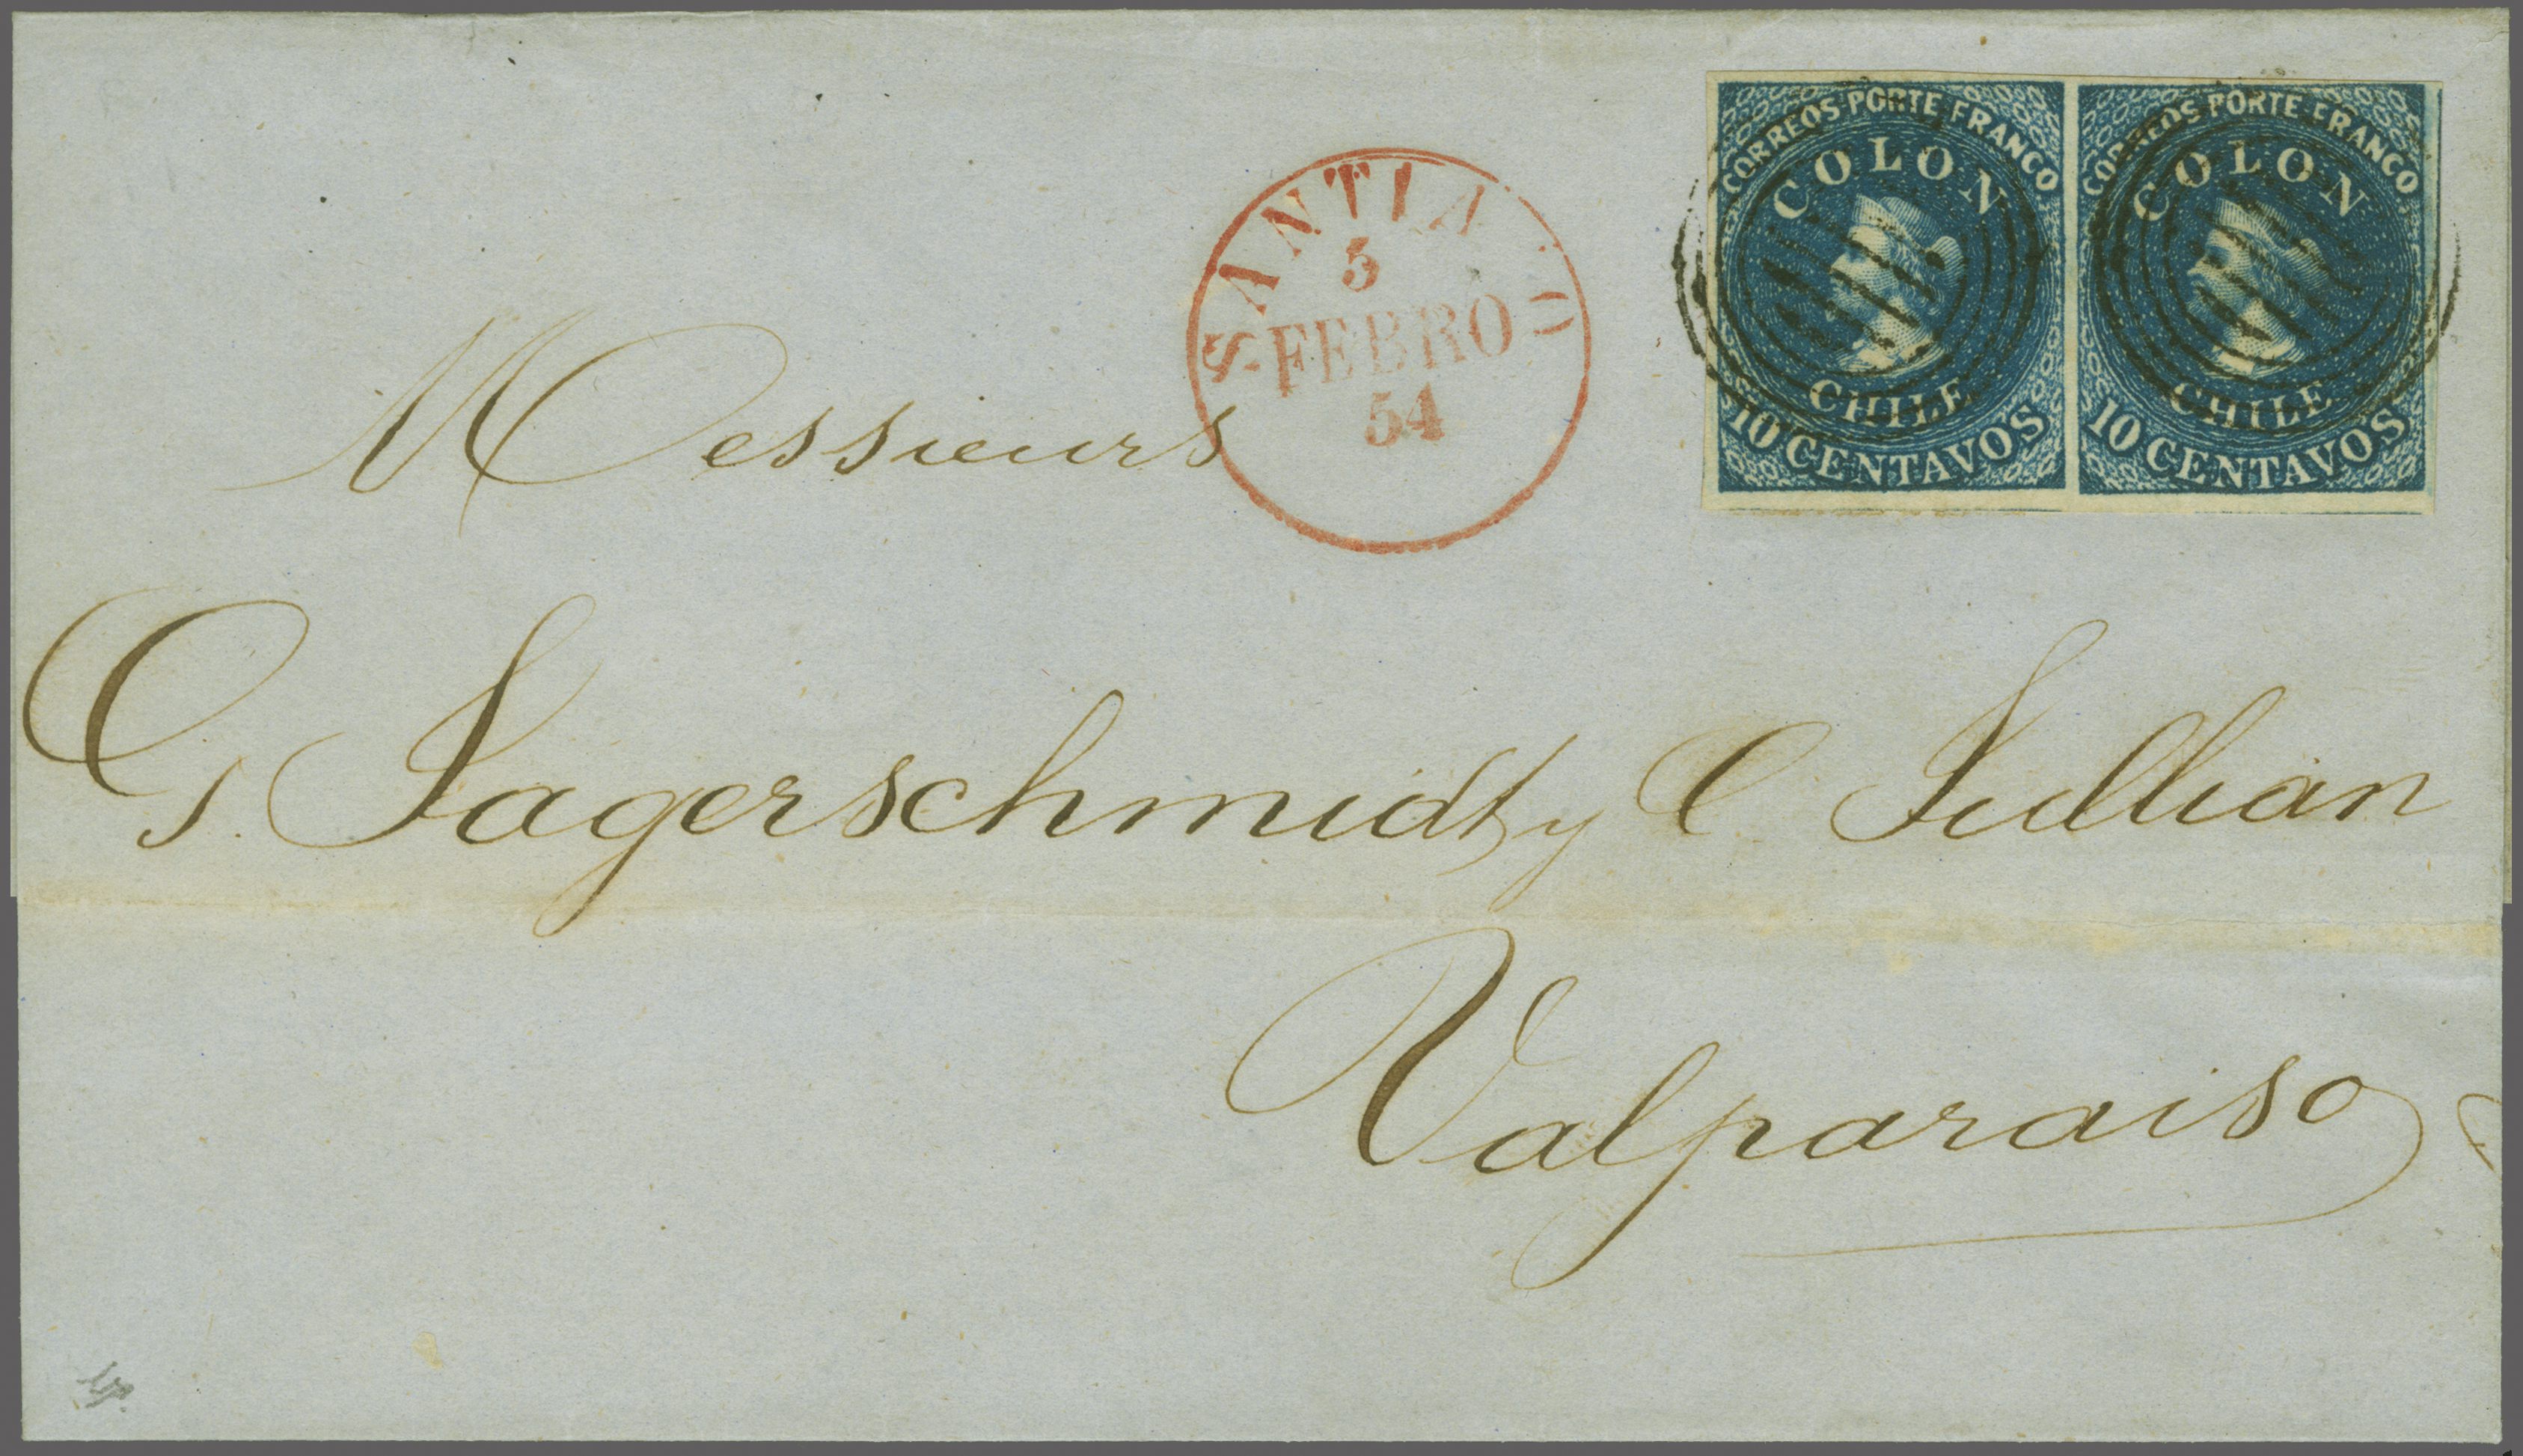 CORREOS PORTE FRANCO
COLON
CHILE
10 CENTAVOS
CORREOS PORTE FRANCO
COLON
CHILE
10 CENTAVOS
SANTIA O
5
FEBRO
54
Messieurs
G. Jagerschmidt y C. Jullian
Valparaiso